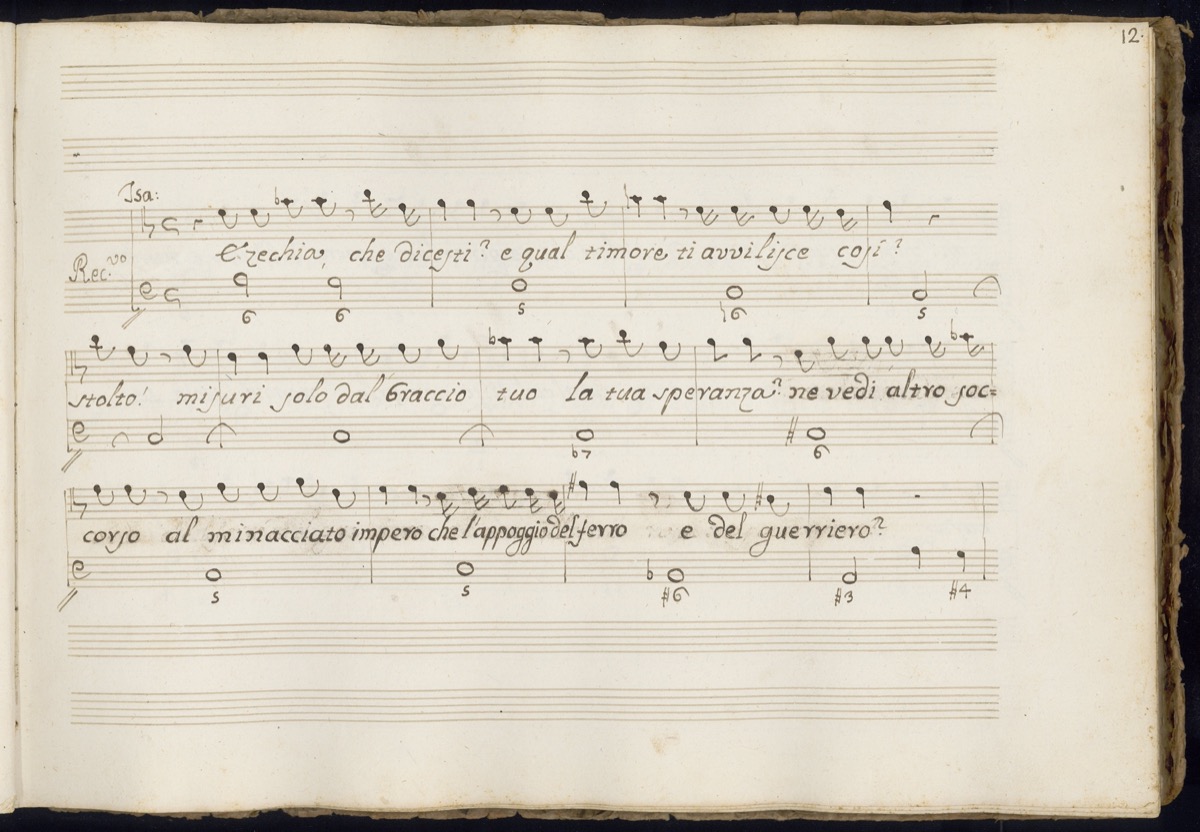 12.
Isa:
Rec.vo
Ezechia, che dicesti? e qual timore ti avvilisce così?
6 6 5 ♮6 5
stolto! misuri solo dal braccio tuo la tua speranza? ne vedi altro soc=
♭7 6
corso al minacciato impero che l'appoggio del ferro e del guerriero?
5 5 #6 #3 #4